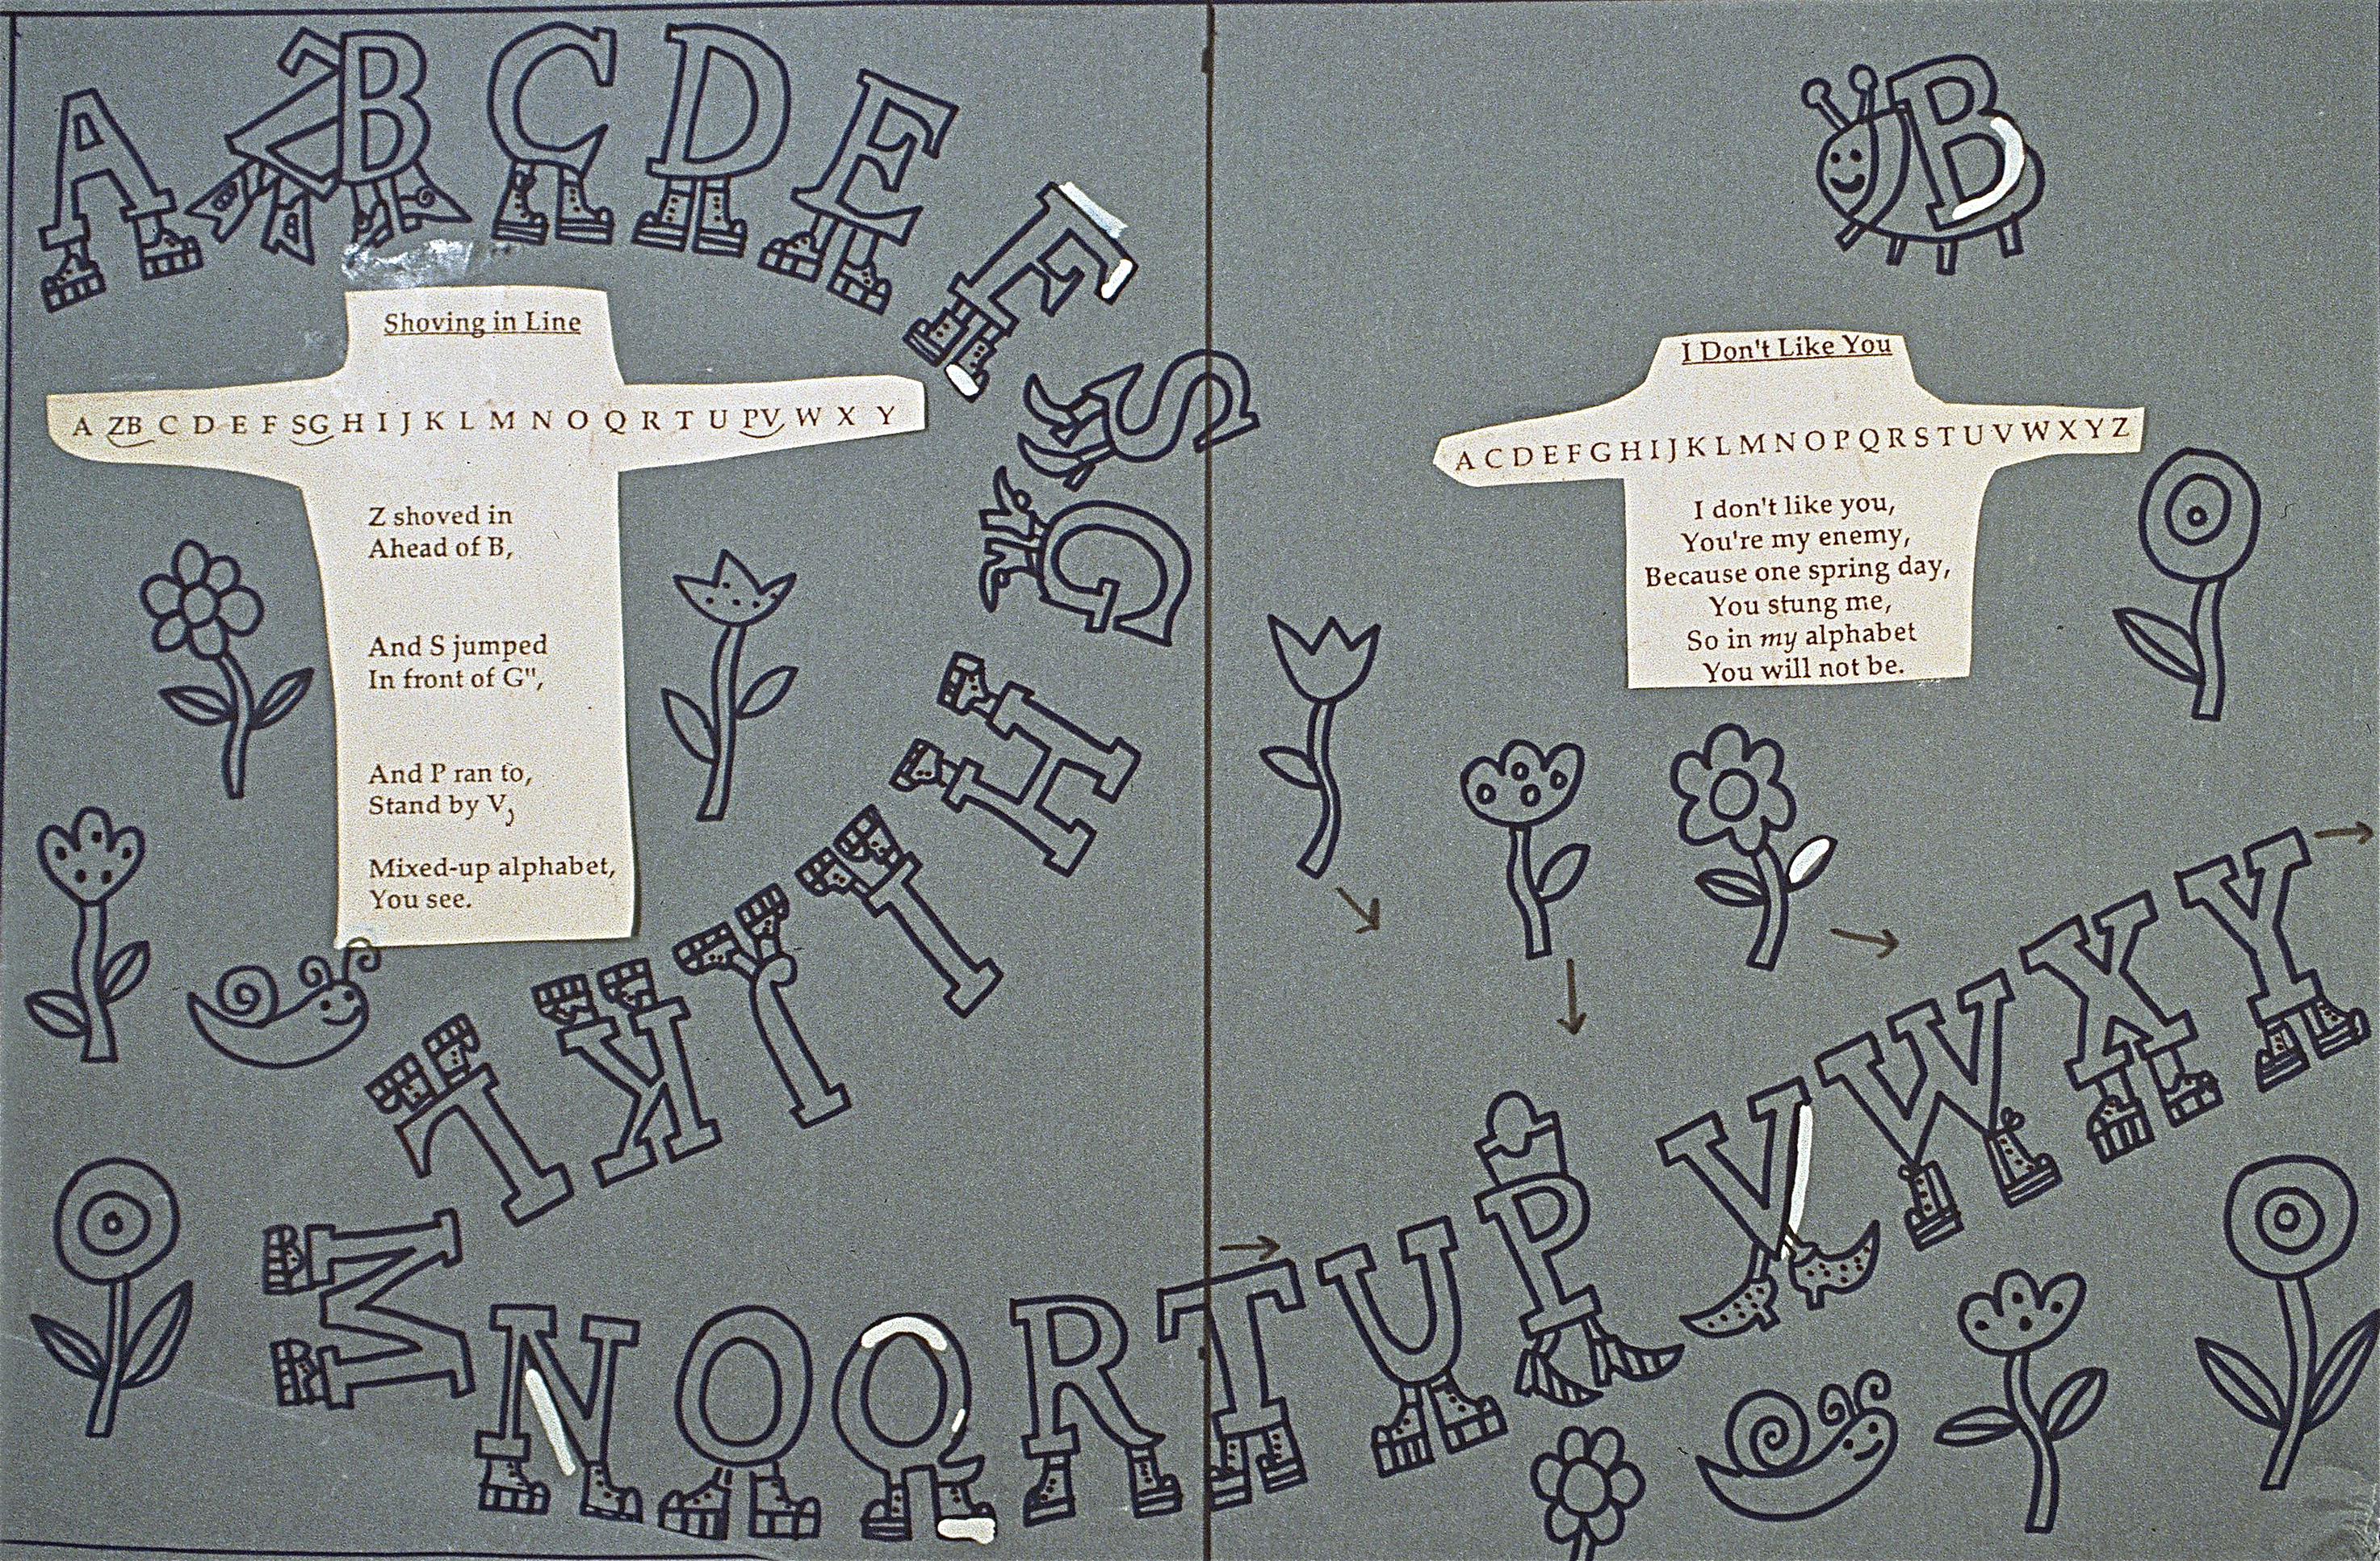 A Z B C D E F
S
G
H
I
J
K
L
M
N O Q R T U P V W X Y
Shoving in Line
A ZB C D E F SG H I J K L M N O Q R T U PV W X Y
Z shoved in
Ahead of B,
And S jumped
In front of G",
And P ran to,
Stand by V,
Mixed-up alphabet,
You see.
B
I Don't Like You
A C D E F G H I J K L M N O P Q R S T U V W X Y Z
I don't like you,
You're my enemy,
Because one spring day,
You stung me,
So in my alphabet
You will not be.